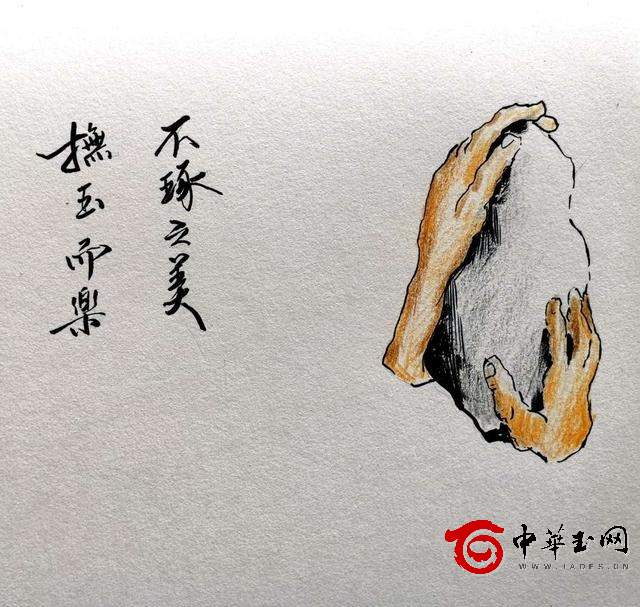 不琢之美
撫玉而樂
中華玉网
WWW.JADES.CN